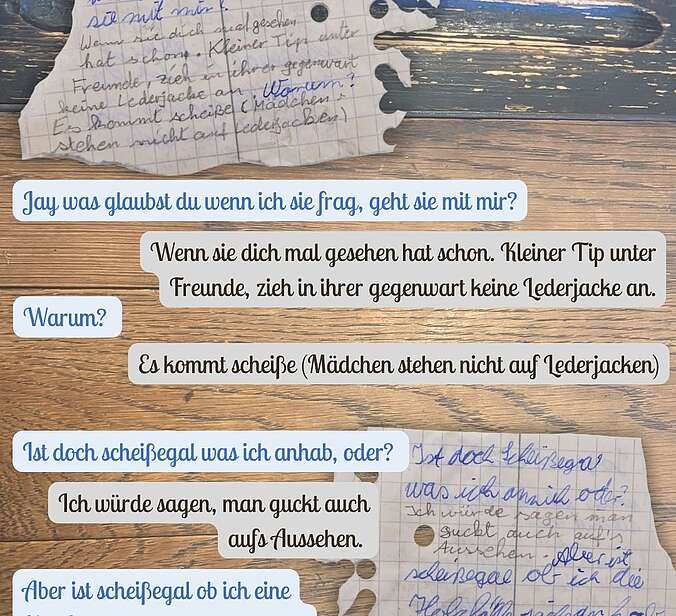 sie mit mir?
Wenn sie dich mal gesehen
hat schon. Kleiner Tip unter
Freunde, zieh in ihrer gegenwart
keine Lederjacke an. Warum?
Es kommt scheiße (Mädchen
stehen nicht auf Lederjacken)
Jay was glaubst du wenn ich sie frag, geht sie mit mir?
Wenn sie dich mal gesehen hat schon. Kleiner Tip unter
Freunde, zieh in ihrer gegenwart keine Lederjacke an.
Warum?
Es kommt scheiße (Mädchen stehen nicht auf Lederjacken)
Ist doch scheißegal was ich anhab, oder?
Ich würde sagen, man guckt auch
aufs Aussehen.
Ist doch scheißegal
was ich oder?
Ich würde sagen man
guckt auch auf's
Aussehen. Aber ist
scheißegal ob ich die
Aber ist scheißegal ob ich eine